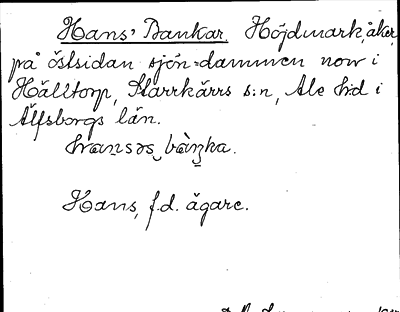 Hans' Bankar. Höjdmark, åker,
på östsidan sjön-dammen norr i
Hålltorp, Starrkärrs s:n, Ale hd i
Älfsborgs län.
hansəs bànka.
Hans, f.d. ägare.